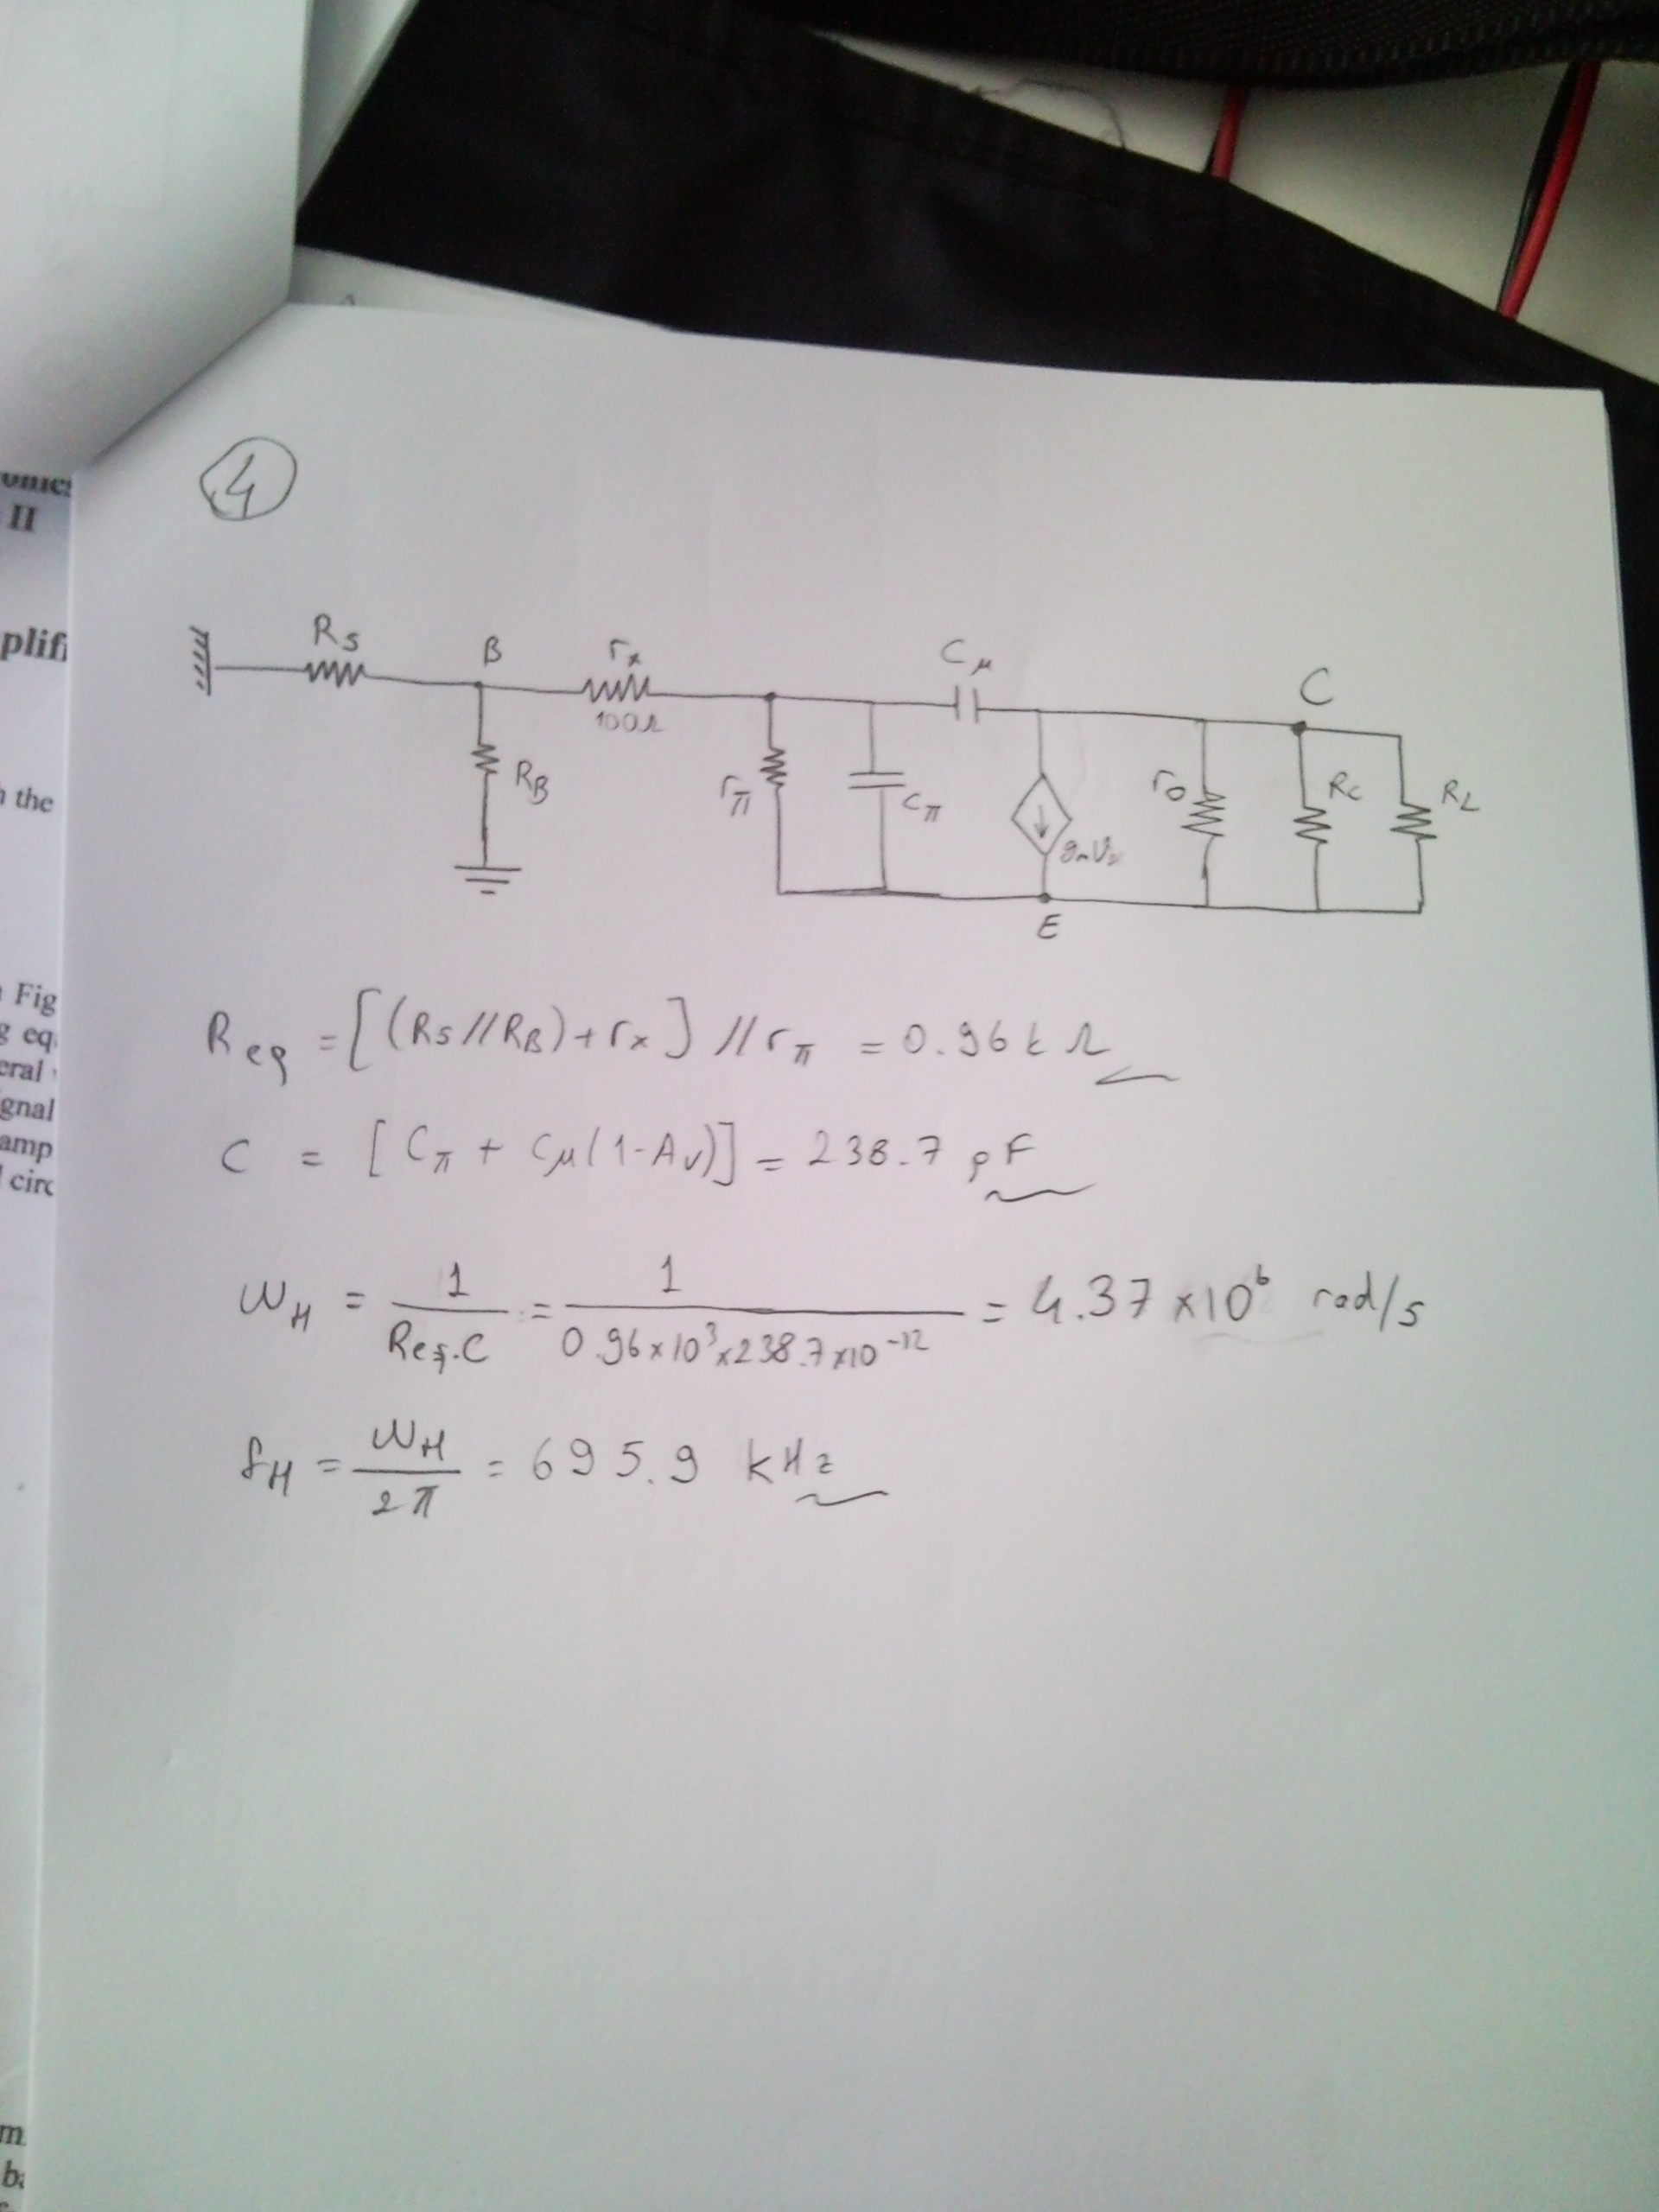 omics
II
plifi
n the
Fig
g eq
eral
gnal
amp
circ
m
ba
4
Rs B rx Cμ C
100Ω
RB rπ Cπ gmVπ ro Rc RL
E
Req = [(Rs//RB)+rx]//rπ = 0.96kΩ
C = [Cπ + Cμ(1-Av)] = 238.7 pF
ωH = 1/Req.C = 1/0.96x10³x238.7x10⁻¹² = 4.37x10⁶ rad/s
fH = ωH/2π = 695.9 kHz